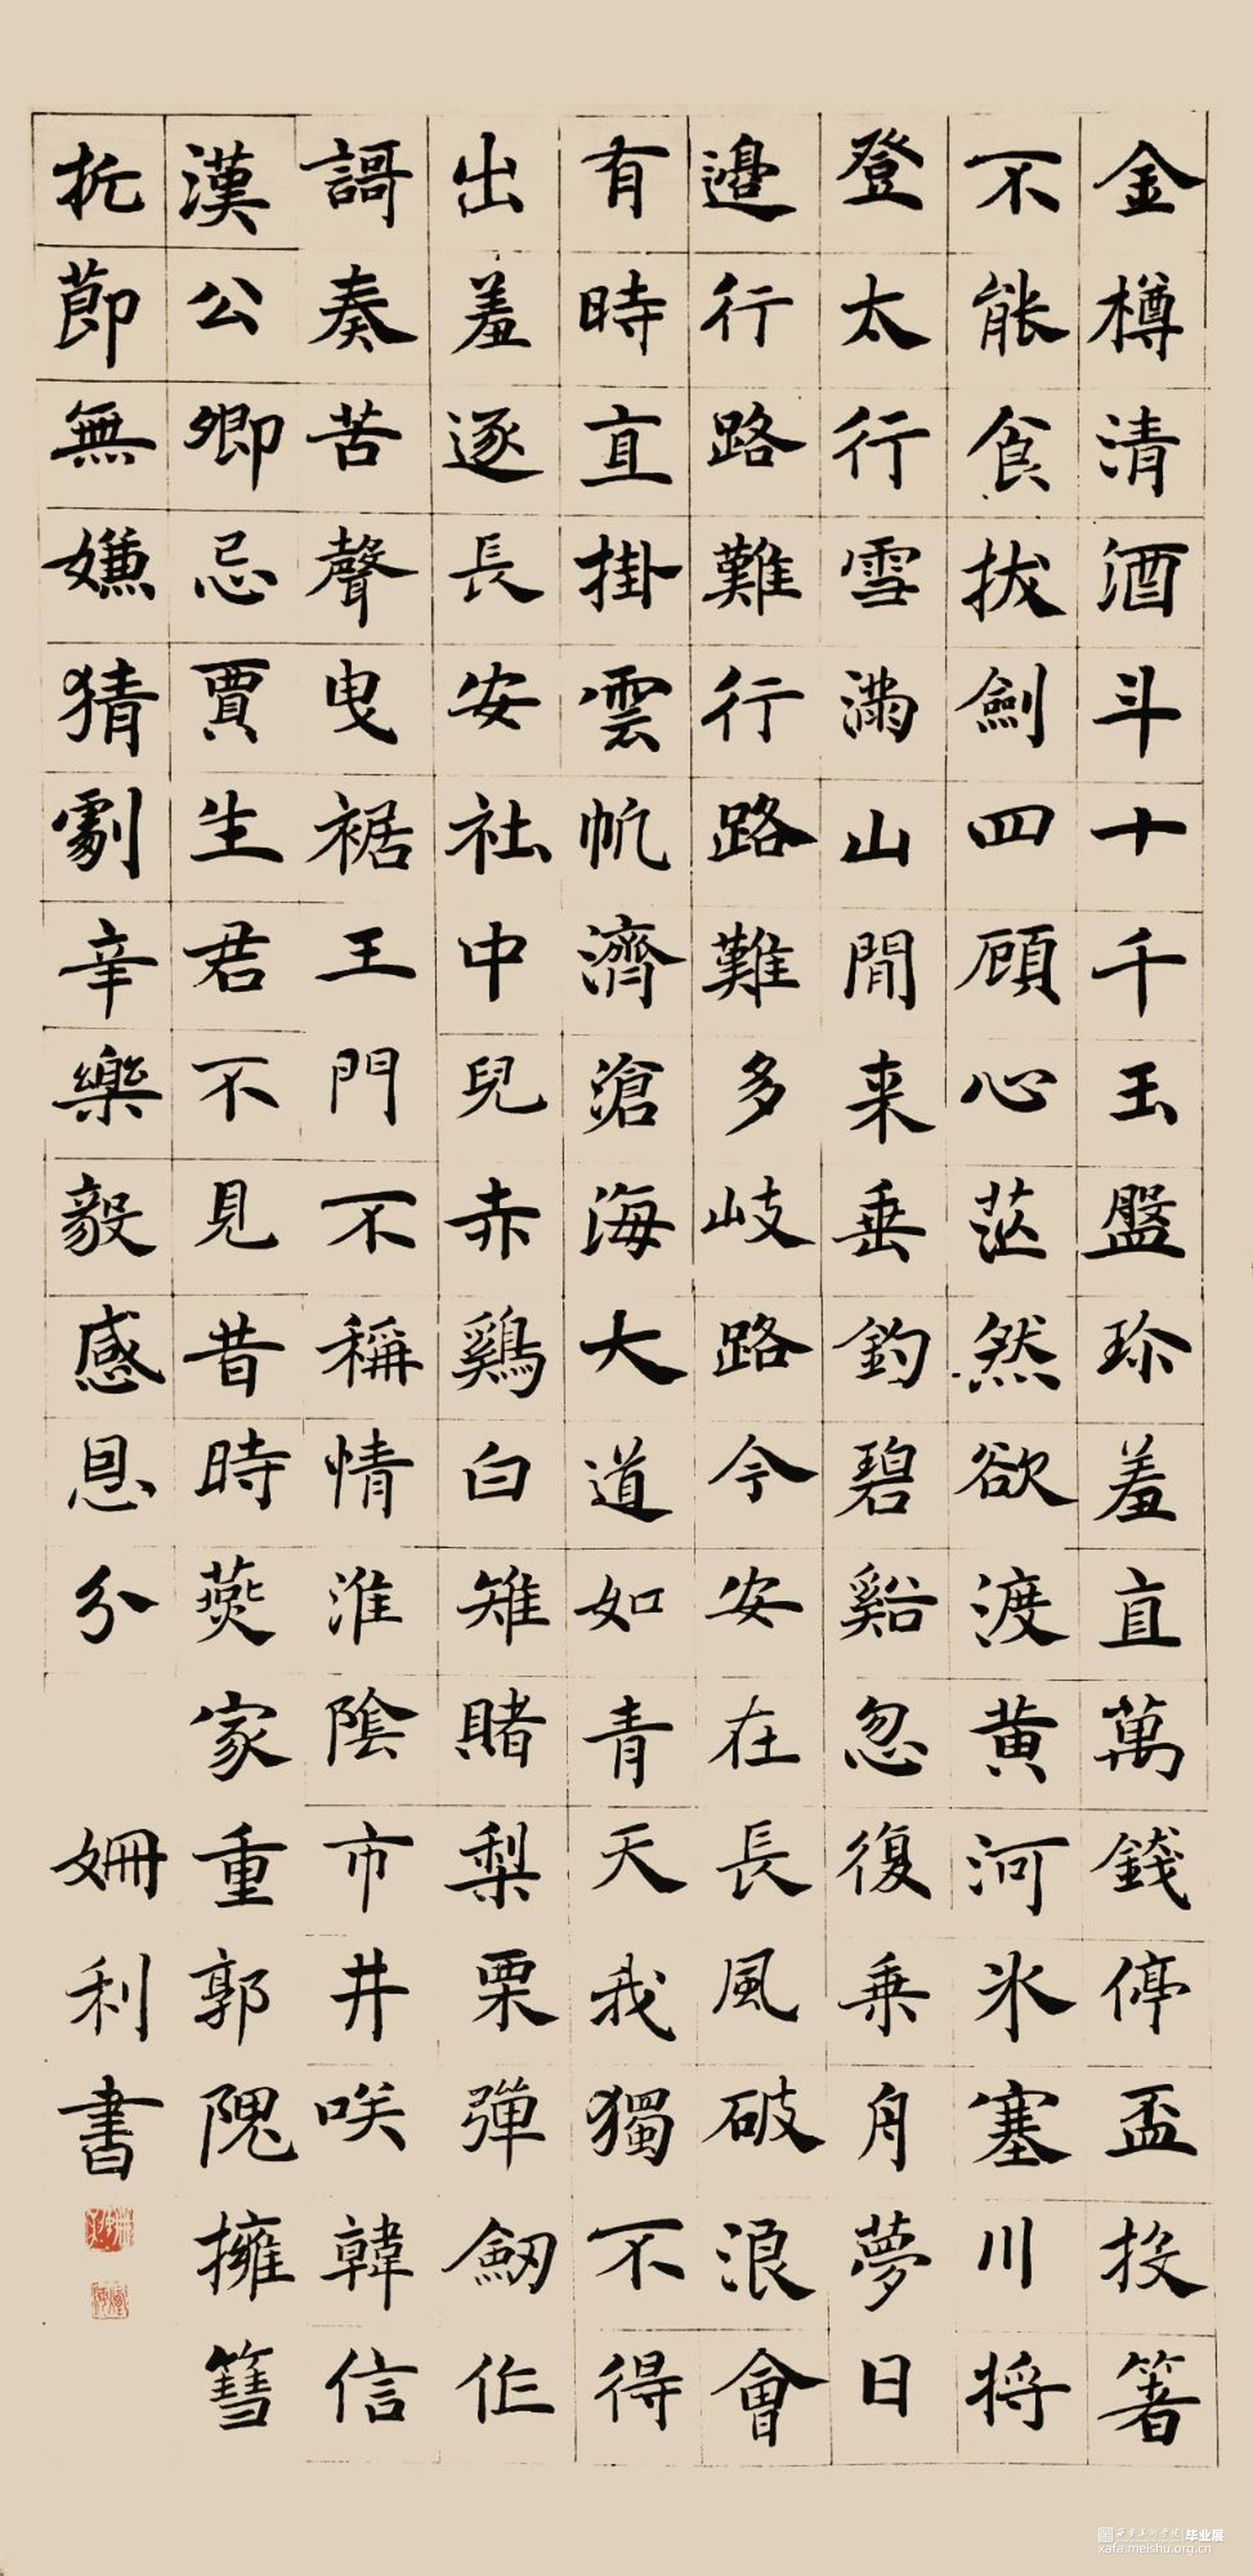 金樽清酒斗十千玉盤珎羞直萬錢停盃投箸
不能食拔劍四顧心茫然欲渡黃河氷塞川將
登太行雪滿山閒来垂釣碧谿忽復乗舟夢日
邉行路難行路難多岐路今安在長風破浪會
有時直掛雲帆濟滄海大道如青天我獨不得
出羞逐長安社中兒赤鷄白雉賭梨栗彈劒作
謌奏苦聲曳裾王門不稱情淮陰市井咲韓信
漢公卿忌賈生君不見昔時燕家重郭隗擁篲
折莭無嫌猜劇辛樂毅感恩分
姍利書
毕业展
xafa.meishu.org.cn